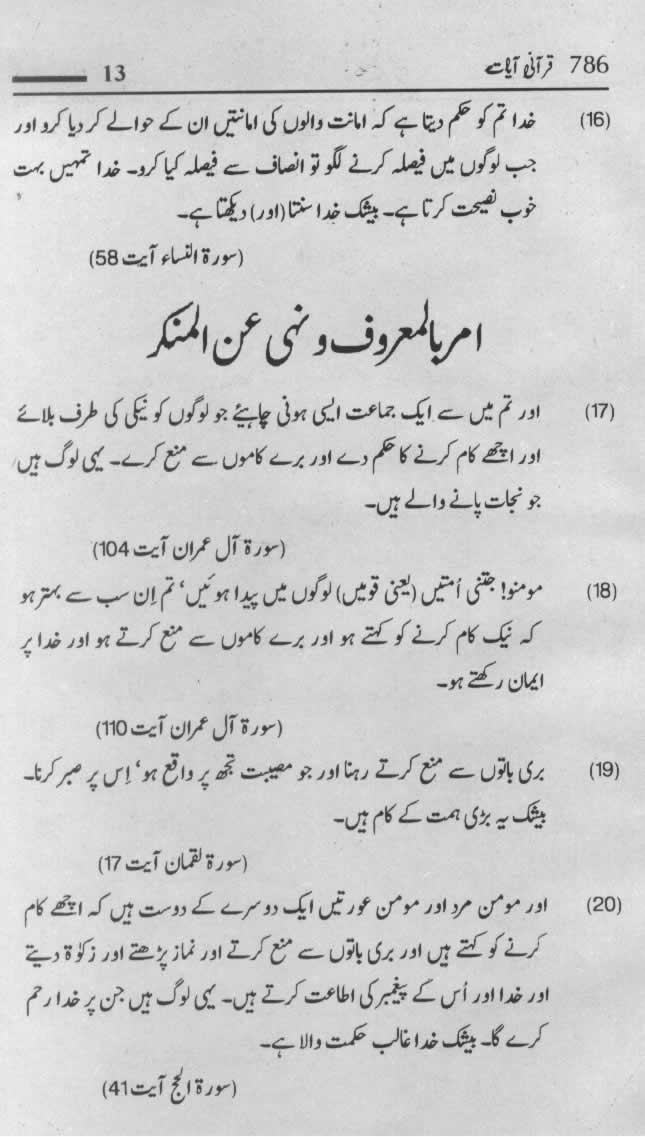 786 قرآنی آیات 13
(16) خدا تم کو حکم دیتا ہے کہ امانت والوں کی امانتیں ان کے حوالے کر دیا کرو اور
جب لوگوں میں فیصلہ کرنے لگو تو انصاف سے فیصلہ کیا کرو۔ خدا تمہیں بہت
خوب نصیحت کرتا ہے۔ بیشک خدا سنتا (اور) دیکھتا ہے۔
(سورۃ النساء آیت 58)
امر بالمعروف و نہی عن المنکر
(17) اور تم میں سے ایک جماعت ایسی ہونی چاہیئے جو لوگوں کو نیکی کی طرف بلائے
اور اچھے کام کرنے کا حکم دے اور برے کاموں سے منع کرے۔ یہی لوگ ہیں
جو نجات پانے والے ہیں۔
(سورۃ آل عمران آیت 104)
(18) مومنو! جتنی اُمتیں (یعنی قومیں) لوگوں میں پیدا ہوئیں، تم اِن سب سے بہتر ہو
کہ نیک کام کرنے کو کہتے ہو اور برے کاموں سے منع کرتے ہو اور خدا پر
ایمان رکھتے ہو۔
(سورۃ آل عمران آیت 110)
(19) بری باتوں سے منع کرتے رہنا اور جو مصیبت تجھ پر واقع ہو، اِس پر صبر کرنا۔
بیشک یہ بڑی ہمت کے کام ہیں۔
(سورۃ لقمان آیت 17)
(20) اور مومن مرد اور مومن عورتیں ایک دوسرے کے دوست ہیں کہ اچھے کام
کرنے کو کہتے ہیں اور بری باتوں سے منع کرتے اور نماز پڑھتے اور زکوٰۃ دیتے
اور خدا اور اُس کے پیغمبر کی اطاعت کرتے ہیں۔ یہی لوگ ہیں جن پر خدا رحم
کرے گا۔ بیشک خدا غالب حکمت والا ہے۔
(سورۃ الحج آیت 41)